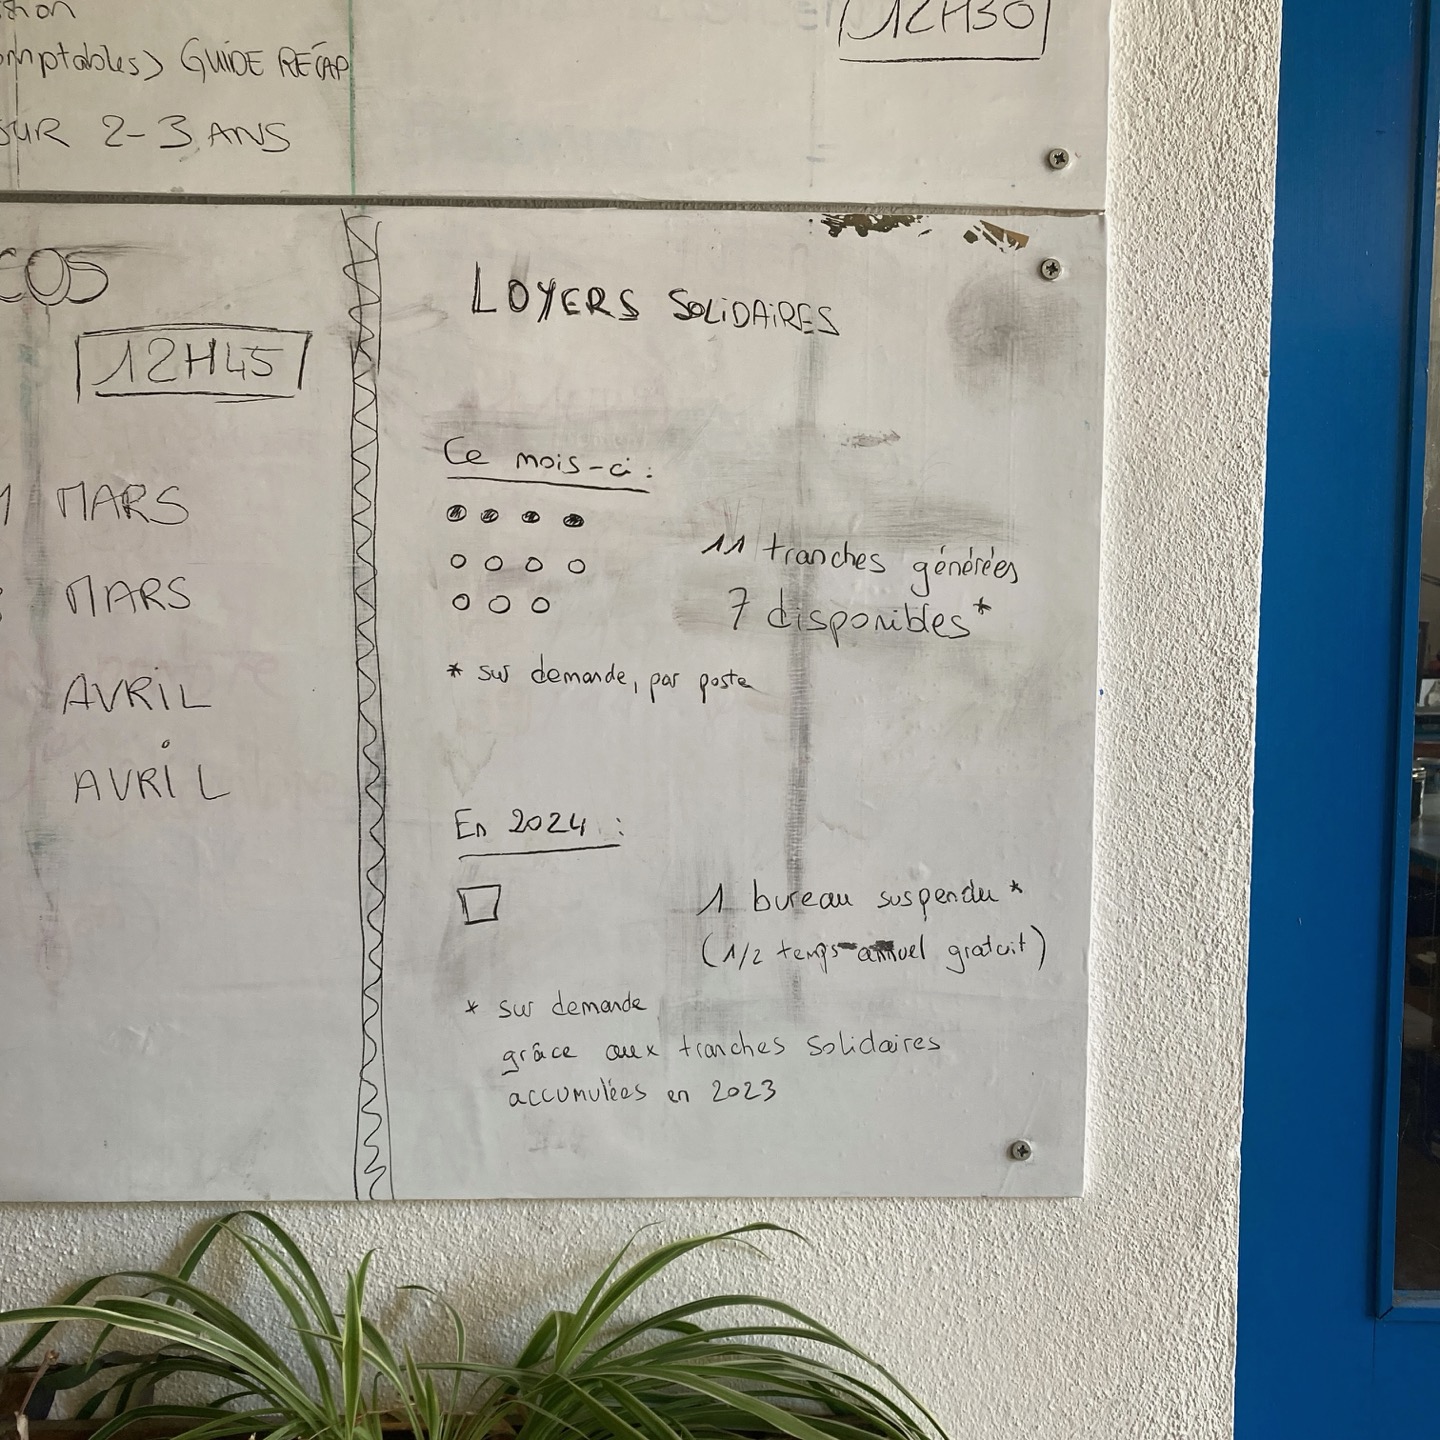 12H30
GUIDE RÉCAP
2-3 ANS
12H45
MARS
MARS
AVRIL
AVRIL
LOYERS SOLIDAIRES
Ce mois-ci :
11 tranches générées
7 disponibles*
* sur demande, par poste
En 2024 :
1 bureau suspendu*
(1/2 temps annuel gratuit)
* sur demande
grâce aux tranches solidaires
accumulées en 2023